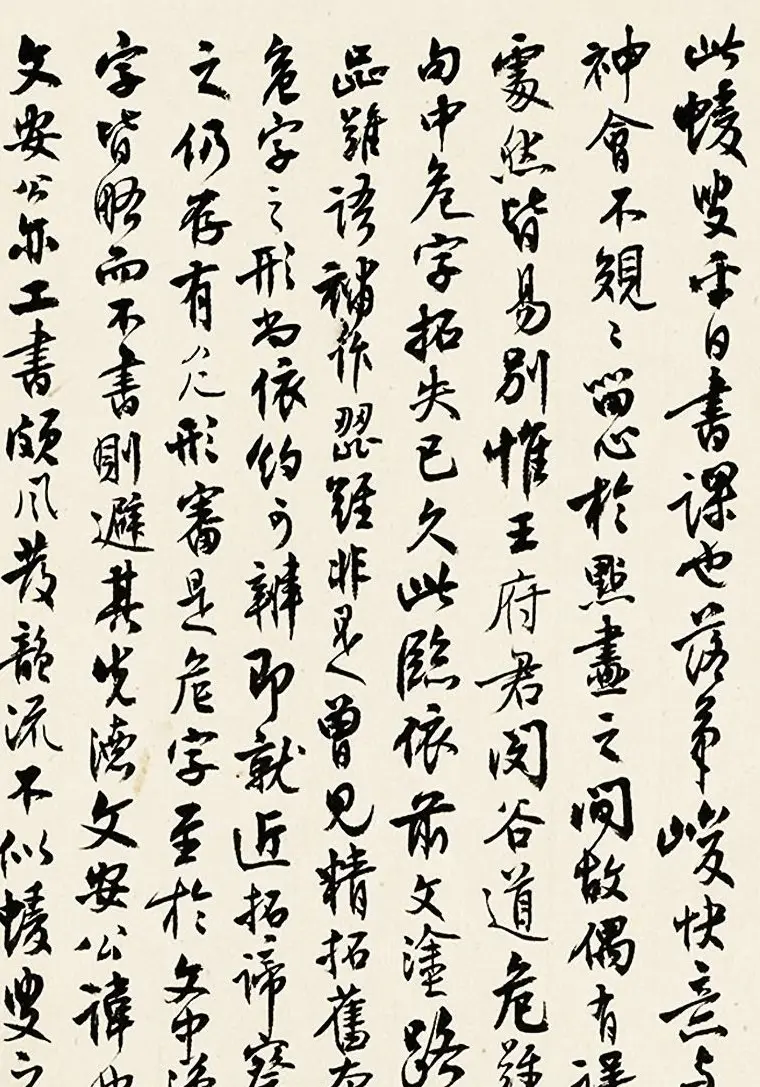 此蝯叟平日書課也落筆峻快意與
神會不覙〻留心於點畫之間故偶有誤
處然皆易別惟王府君閔谷道危難
句中危字拓失已久此臨依前文塗路
歰難語補作歰難非是曾見精拓舊本
危字之形尚依約可辨即就近拓諦察
之仍存有𠂊㔾形審是危字至於文中遇
字皆略而不書則避其先德文安公諱也
文安公亦工書頗風發韻流不似蝯叟之